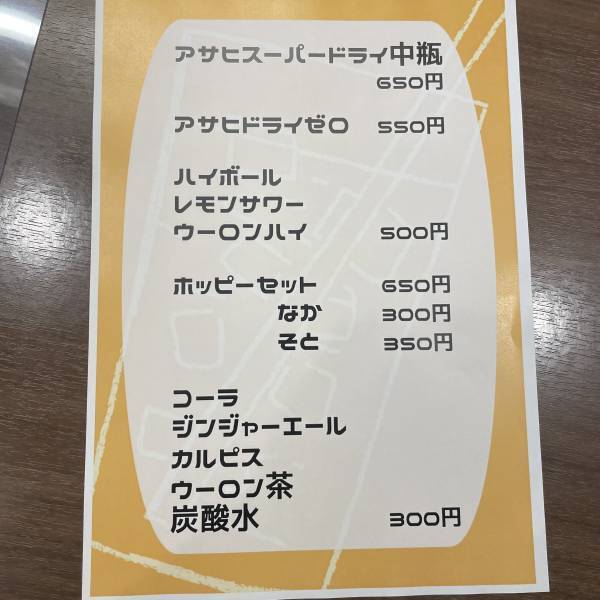 アサヒスーパードライ中瓶
650円
アサヒドライゼロ 550円
ハイボール
レモンサワー
ウーロンハイ 500円
ホッピーセット 650円
なか 300円
そと 350円
コーラ
ジンジャーエール
カルピス
ウーロン茶
炭酸水 300円